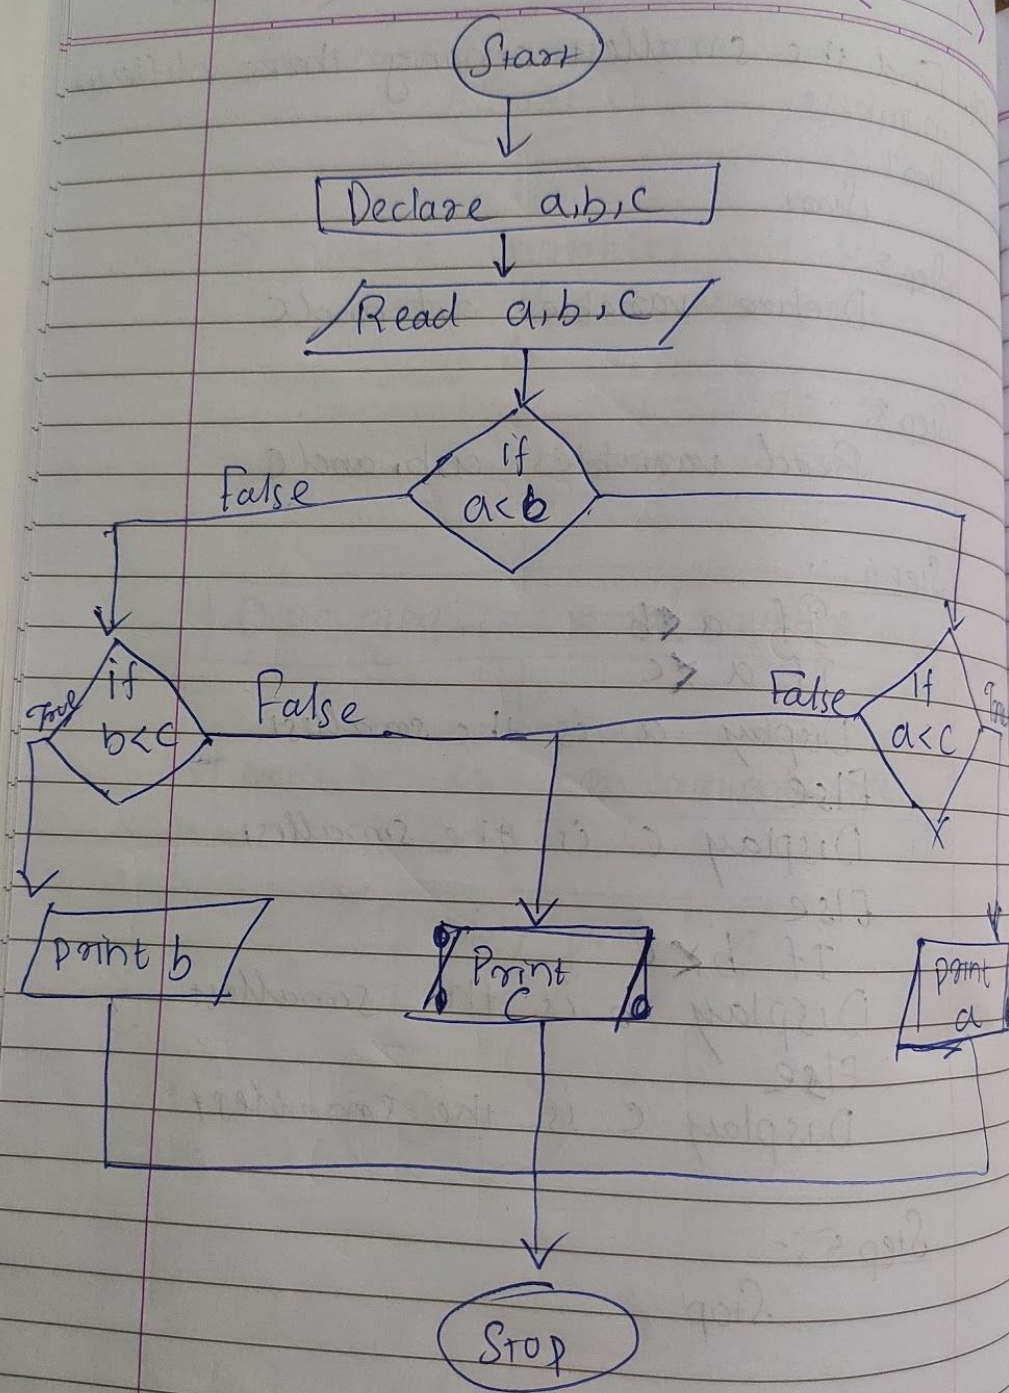 Start
Declare a,b,c
Read a,b,c
if
a<b
False
if
b<c
True
False
False
if
a<c
True
Print b
Print
C
Print
a
Stop